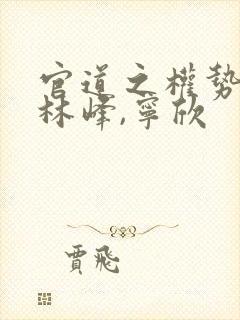 官道之權勢
林峰,寧欣
賈飛